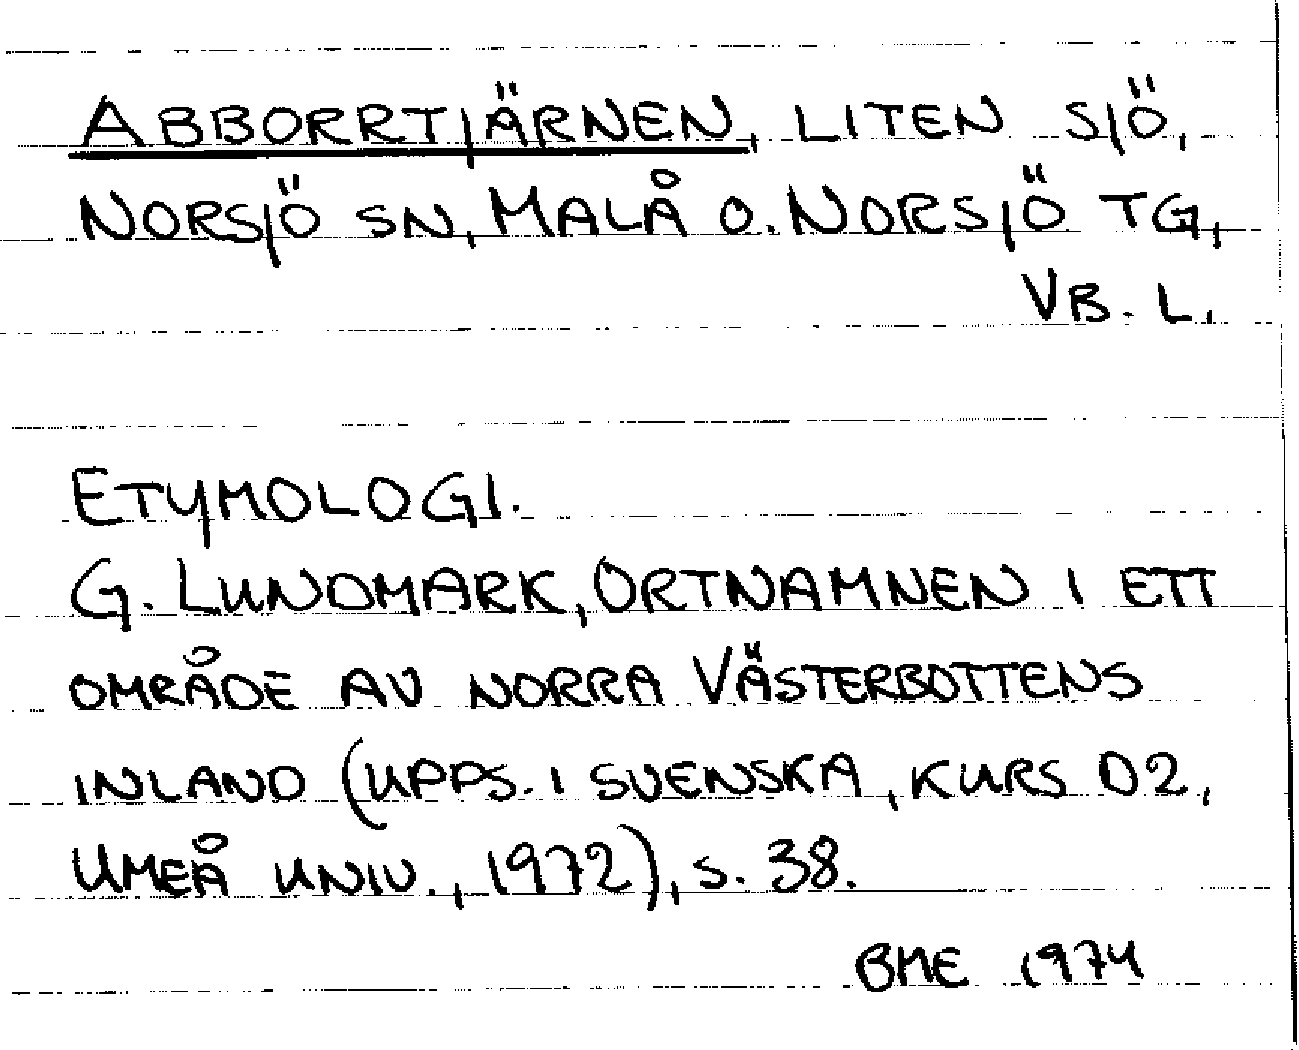 ABBORRTJÄRNEN, LITEN SJÖ,
NORSJÖ SN, MALÅ O. NORSJÖ TG,
VB. L.
ETYMOLOGI.
G. LUNDMARK, ORTNAMNEN I ETT
OMRÅDE AV NORRA VÄSTERBOTTENS
INLAND (UPPS. I SVENSKA, KURS D2,
UMEÅ UNIV., 1972), S. 38.
BME 1974